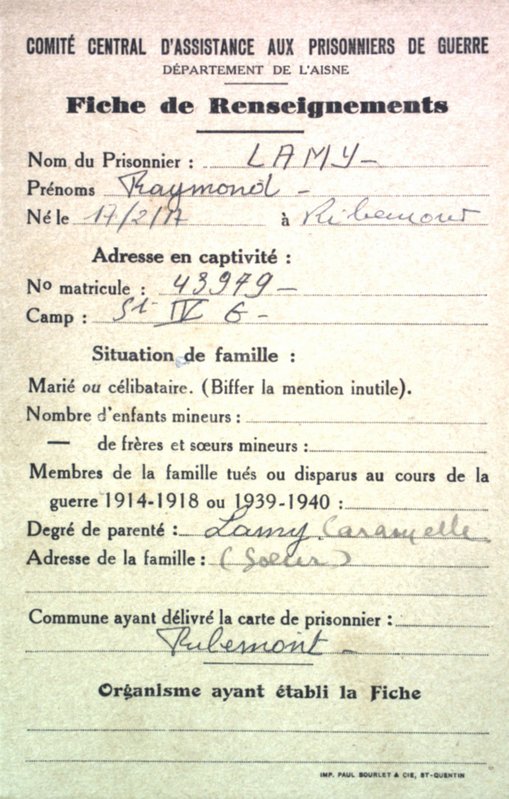 COMITÉ CENTRAL D'ASSISTANCE AUX PRISONNIERS DE GUERRE
DÉPARTEMENT DE L'AISNE
Fiche de Renseignements
Nom du Prisonnier : LAMY -
Prénoms Raymond -
Né le 17/2/17 à Ribemont
Adresse en captivité :
No matricule : 43979 -
Camp : St IV G -
Situation de famille :
Marié ou célibataire. (Biffer la mention inutile).
Nombre d'enfants mineurs :
— de frères et sœurs mineurs :
Membres de la famille tués ou disparus au cours de la
guerre 1914-1918 ou 1939-1940 :
Degré de parenté : Lamy
Adresse de la famille : (Soeur)
Commune ayant délivré la carte de prisonnier :
Ribemont -
Organisme ayant établi la Fiche
IMP. PAUL BOURLET & CIE, ST-QUENTIN